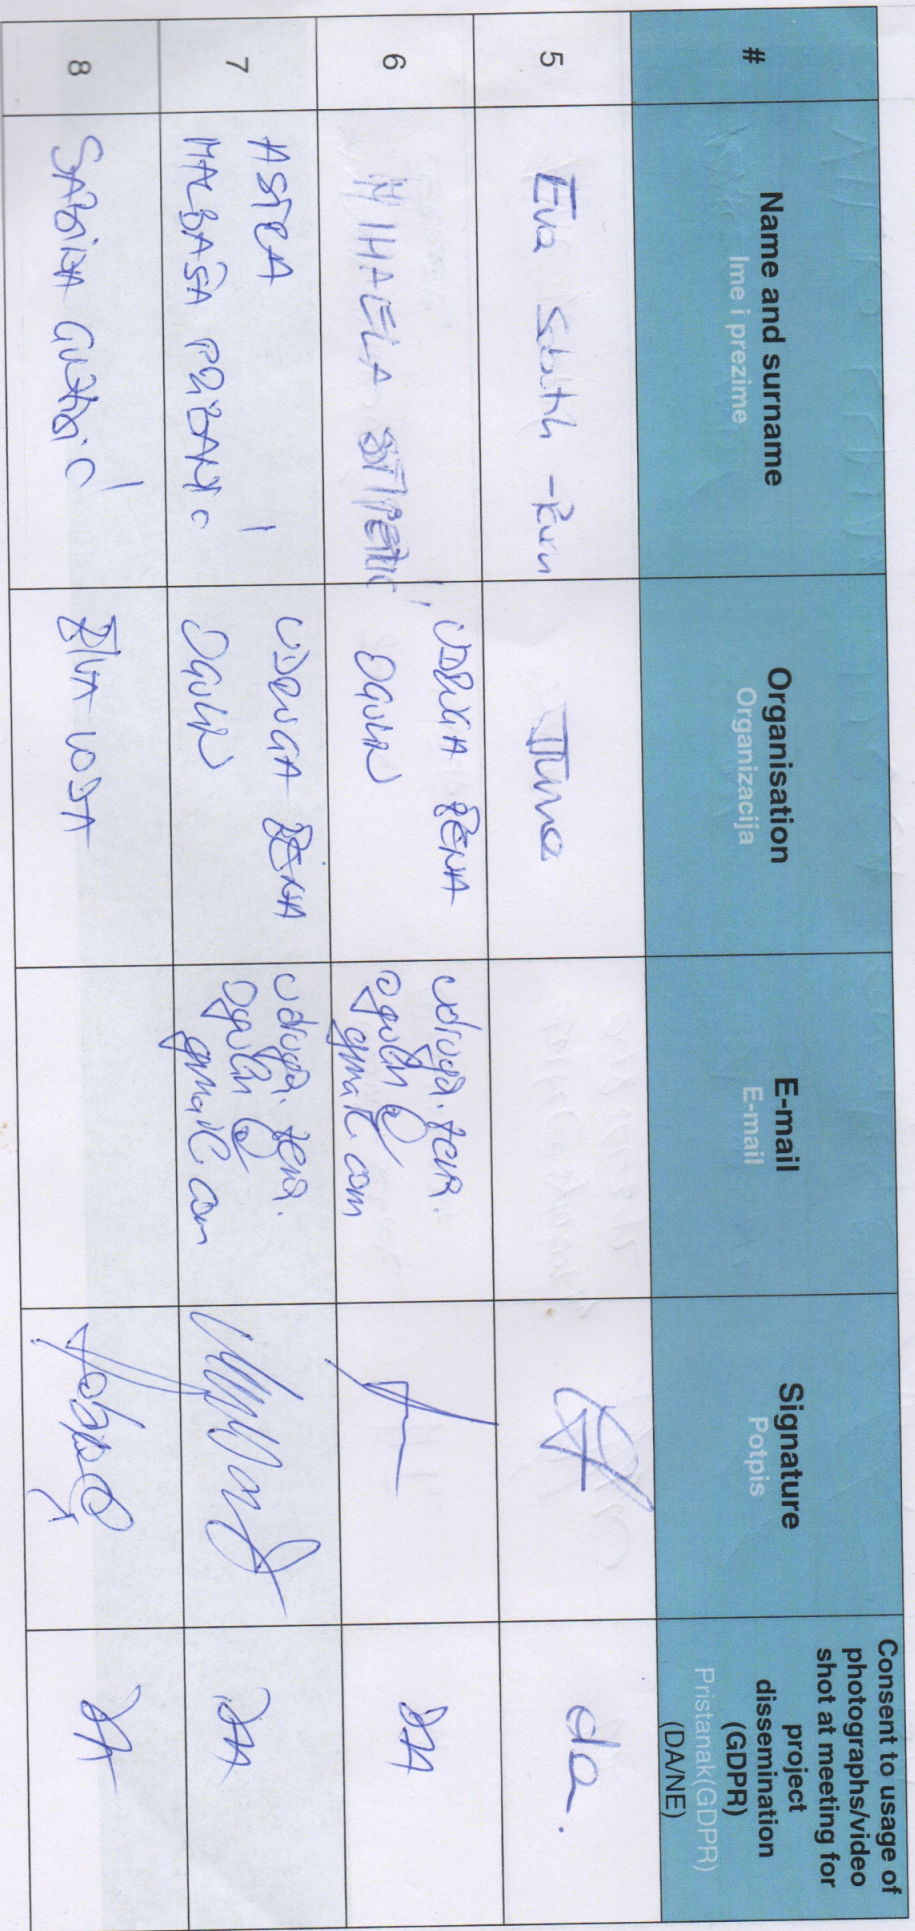 #
Name and surname
Ime i prezime
Organisation
Organizacija
E-mail
E-mail
Signature
Potpis
Consent to usage of
photographs/video
shot at meeting for
project
dissemination
(GDPR)
Pristanak(GDPR)
(DA/NE)
5
Eva
da.
6
MIHAELA STIPETIĆ
UDRUGA ŽENA
OGULIN
udruga.zena.
ogulin@
gmail.com
DA
7
ASTRA
MALBAŠA PRIBANIĆ
UDRUGA ŽENA
OGULIN
udruga.zena.
ogulin@
gmail.com
DA
8
SABINA
ŽIVA VODA
DA